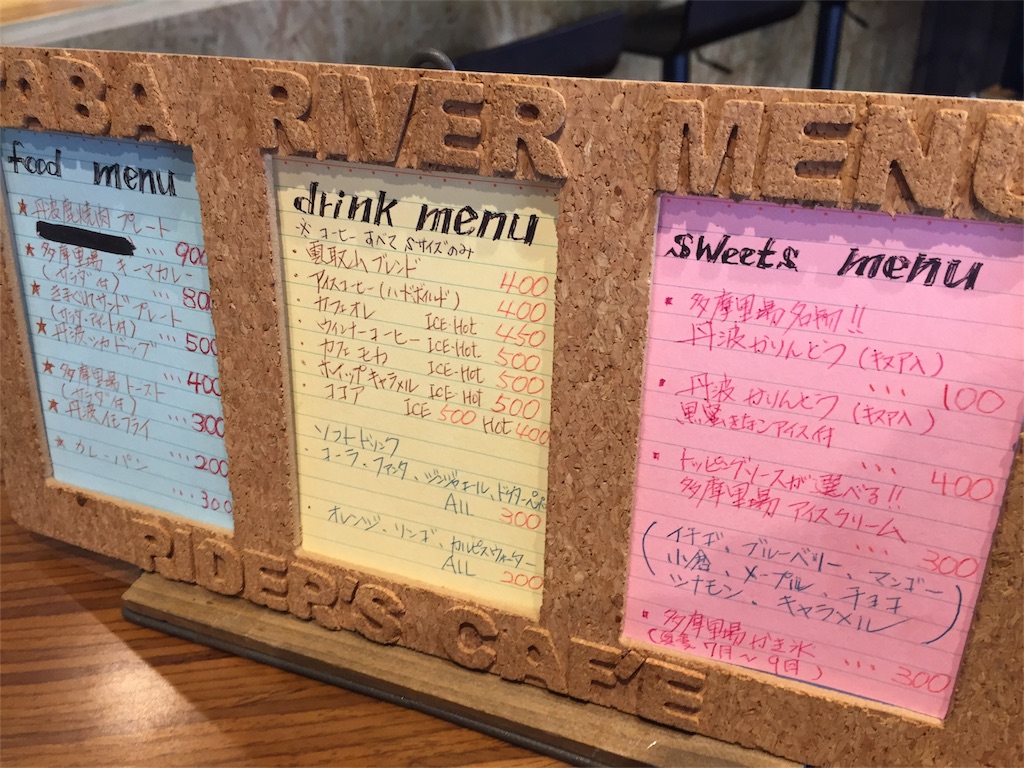 ABA RIVER MENU
food menu
★丹波鹿焼肉プレート
… 900
★多摩里場 キーマカレー
(サラダ付)
… 800
★きまぐれサンドプレート
… 500
★丹波ジカドッグ
… 400
★多摩里場トースト
(サラダ付)
… 300
★丹波イモフライ
… 200
★カレーパン
… 300
drink menu
※コーヒーすべてSサイズのみ
・雲取山ブレンド 400
・アイスコーヒー(ハードボイルド) 400
・カフェオレ ICE・Hot 450
・ウインナーコーヒー ICE・Hot 500
・カフェモカ ICE・Hot 500
・ホイップキャラメル ICE・Hot 500
・ココア ICE 500 Hot 400
ソフトドリンク
・コーラ、ファンタ、ジンジャエール、ドクターペッパー
ALL 300
・オレンジ、リンゴ、カルピスウォーター
ALL 200
sweets menu
・多摩里場名物!!
丹波かりんとう(キヌア入)
… 100
・丹波かりんとう(キヌア入)
黒蜜きなこアイス付
… 400
・トッピングソースが選べる!!
多摩里場アイスクリーム
… 300
(イチゴ、ブルーベリー、マンゴー
小倉、メープル、チョコ
シナモン、キャラメル)
・多摩里場かき氷
(7月〜9月)
… 300
RIDER'S CAFE